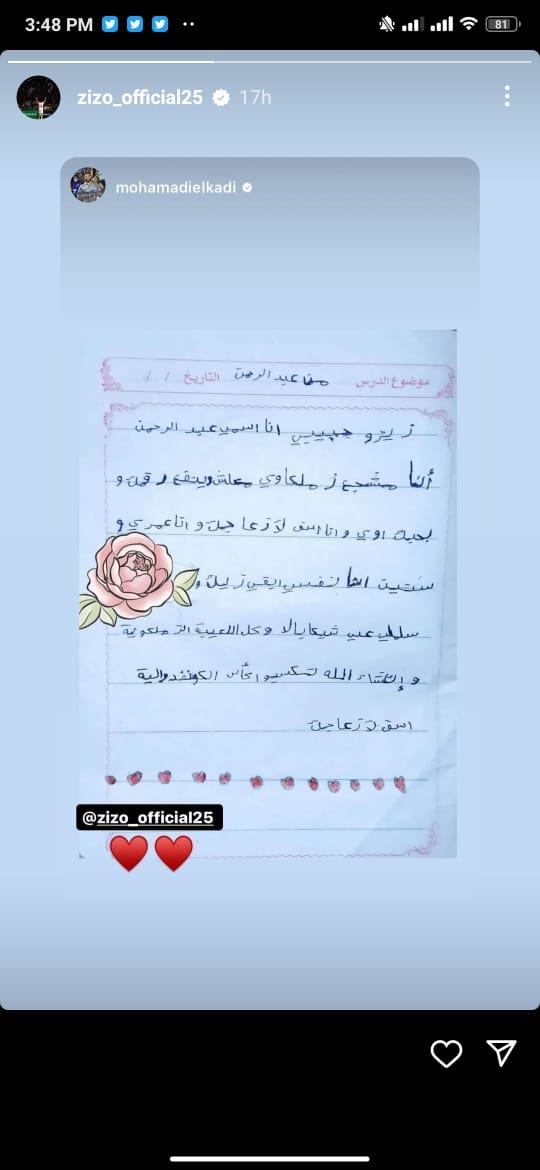 3:48 PM
81
zizo_official25 17h
mohamadielkadi
موضوع الدرس من عبد الرحمن التاريخ / /
زيزو حبيبي انا اسمي عبد الرحمن
أنا مشجع زملكاوي
بحبك اوي و انا اسف لازعاجك و انا عمري و
سنتين انا نفسي ابقي زيك و
سلملي علي شيكابالا و كل اللعيبة الزملكوية
و إنشاء الله تكسبو كأس الكونفدرالية
اسف لازعاجك
@zizo_official25